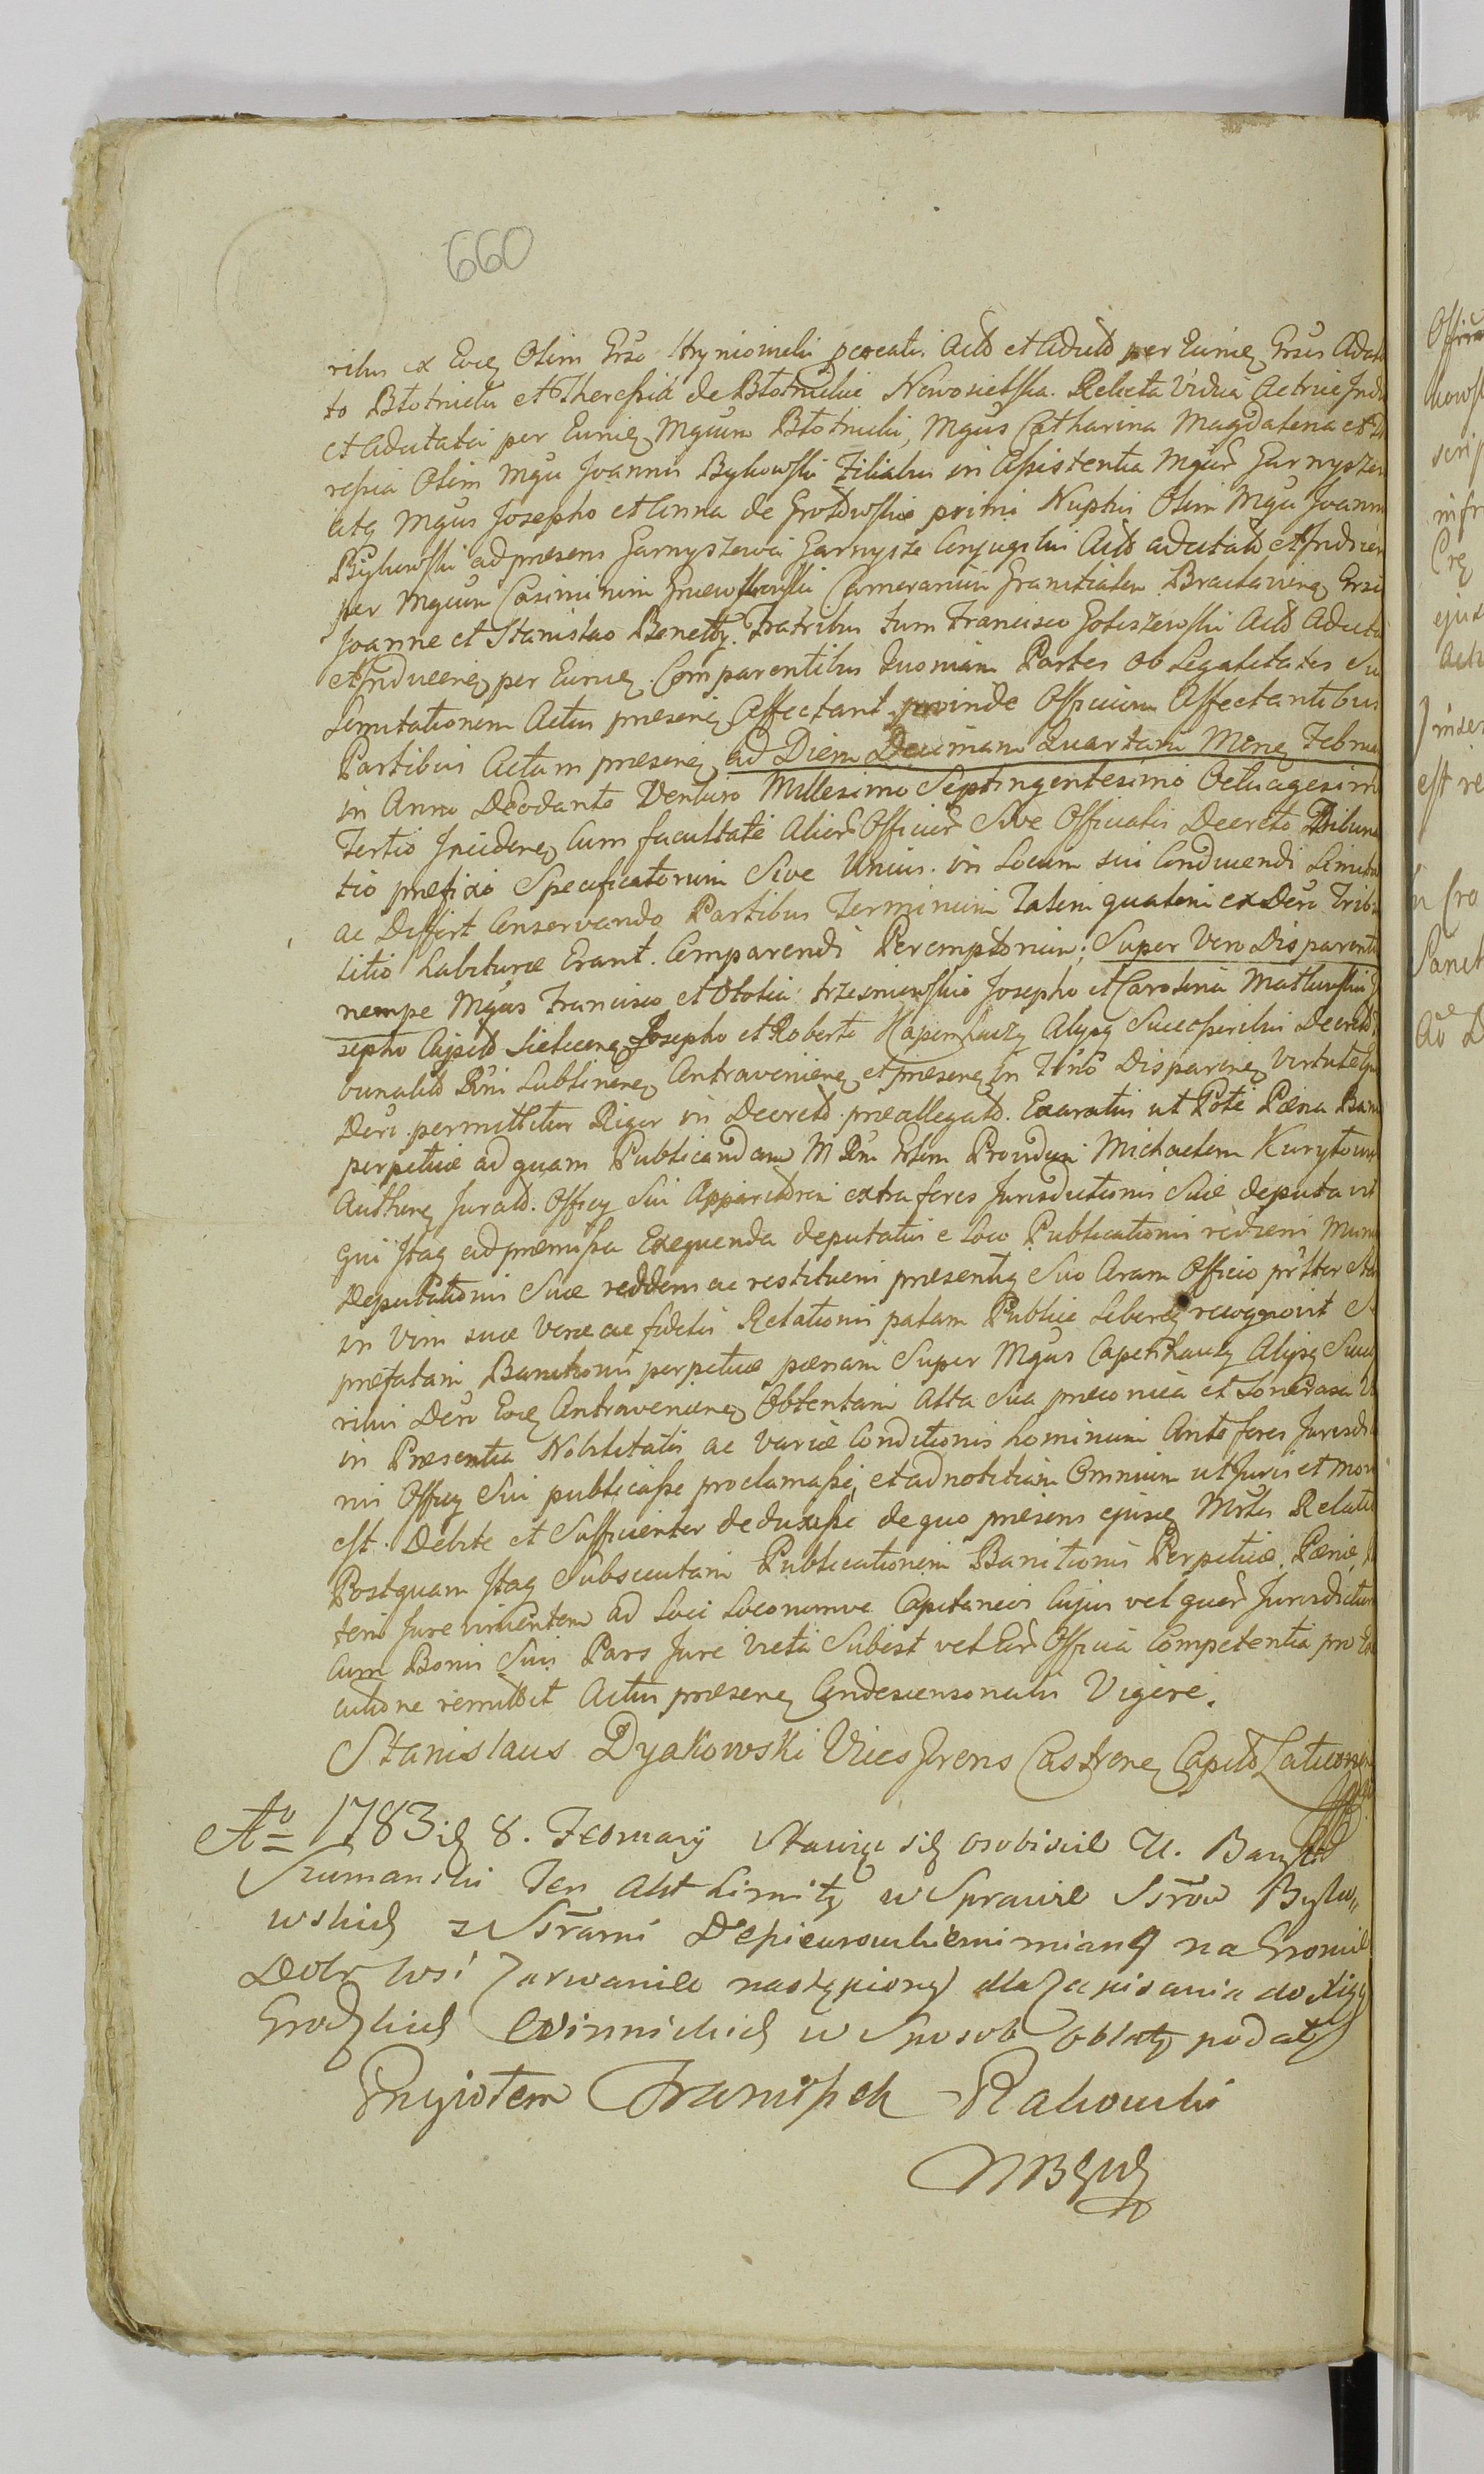 660
ribus ex Eoq Olim Grso Hryniomelii procatis Acto et Aduto per Eunq Grsus Aduta
to Błotnicki et Theressia de Błotnickie Nowosielska Relicta Vidua Actrice Indu
et Adutata per Eunq Mgcum Błotnicki, Mgcus Catharina Magdalena et The
ressia Olim Mgci Joannis Bykowski Filiabus in Assistentia Mgcor Garnyszew
atq Mgcus Josepho et Anna de Grotowskie primi Nuptus Olim Mgci Joannis
Bykowski ad praesens Garnyszewa Garnysze Conjugibus Acto adutato et Inducen
per Mgcum Casimirum Camerarium Granitialem Braclavienq Grsis
Joanne et Stanislao Benetty Fratribus tum Francisco Goliszewski Acto Adutato
et Inducenq per Eunq Comparentibus Quoniam Partes ob Legalitates Su
Limitationem Actus praesenq Affectant proinde Officium Affectantibus
Partibus Actum praesenq ad Diem Decimam Quartam Menq Febru
in Anno Deodante Venturo Millesimo Septingentesimo Octuagesimo
Tertio Incidenq Cum facultate Alior Officior Sive Officialis Decreto Tribuna
tio praefixo Specificatorum Sive Unius in Locum sui Conducendi Limita
ac Differt Conservando Partibus Terminum Talem qualem ex Decr Tribu
litio habiturae Erant Comparendi Peremptorium; Super Vero Disparent
nempe Mgcus Francisco et Otolia trzesniowskie Josepho et Carolina Matkowskie
sepho Josepho et Roberto Kapenhauzy Alysq Successoribus Decreto
bunalito Rni Lublinenq Contravenienq et praesenq in Tno Disparenq Virtute
Decr permittitur Rigor in Decreto praeallegato Exaratus ut Pote Paena Bani
perpetuae ad quam Publicandam M Rni Gnlem Providum Michaelem Kuryłow
Authenq Jurato Officy Sui Apparitorem extra fores Jurisdictionis Suae deputavit
Qui Itaq ad praemissa Exequenda deputatus e Loco Publicationis rediens Munus
Deputationis Suae reddens ac restituens praesentiq Suo Coram Officio prstter Stans
in Vim suae Verae ac fidelis Relationis palam Publice Libereq recognovit Se
praefatam Banitionis perpetuae paenam Super Mgcus Capenhauzy Alysq Succes
ribus Decr Eoq Contravenienq Obtentam Alta Sua praeconica et Sonorasa Vo
in Praesentia Nobilitatis ac Variae Conditionis hominum Ante fores Jurisdi
nis Officy Sui publicasse proclamasse, et ad notitiam Omnium ut Juris et Moris
est Debite et Sufficienter deduxisse de quo praesens ejusq Mrlis Relatio
Postquam Itaq Subsecutam Publicationem Banitionis Perpetuae Paenae
tem Jure vincentem ad Loci Locorumve Capitaneos Cujus vel quor Jurisdictioni
Cum Bonis Suis Pars Jure Victa Subest vel Eor Officia Competentia pro Exe
cutione remittit Actus praesenq Condescensorialis Vigore.
Stanislaus Dyakowski Vices Grens Castrenq Capito Laticon
Ao 1783 ij 8. February Stawaiąc się osobiscie U. Bazyli
Szumanski Ten Akt Limity w Sprawie Ssrow Byko„
wskich z Ssrami mianej na Groncie
Dobr wsi Zarwaniec nastąpioney dla Zapisania do Xiąg
Grodzkich Winnickich w Sposob oblaty podał
Przyiołem Franciszek Rakowski